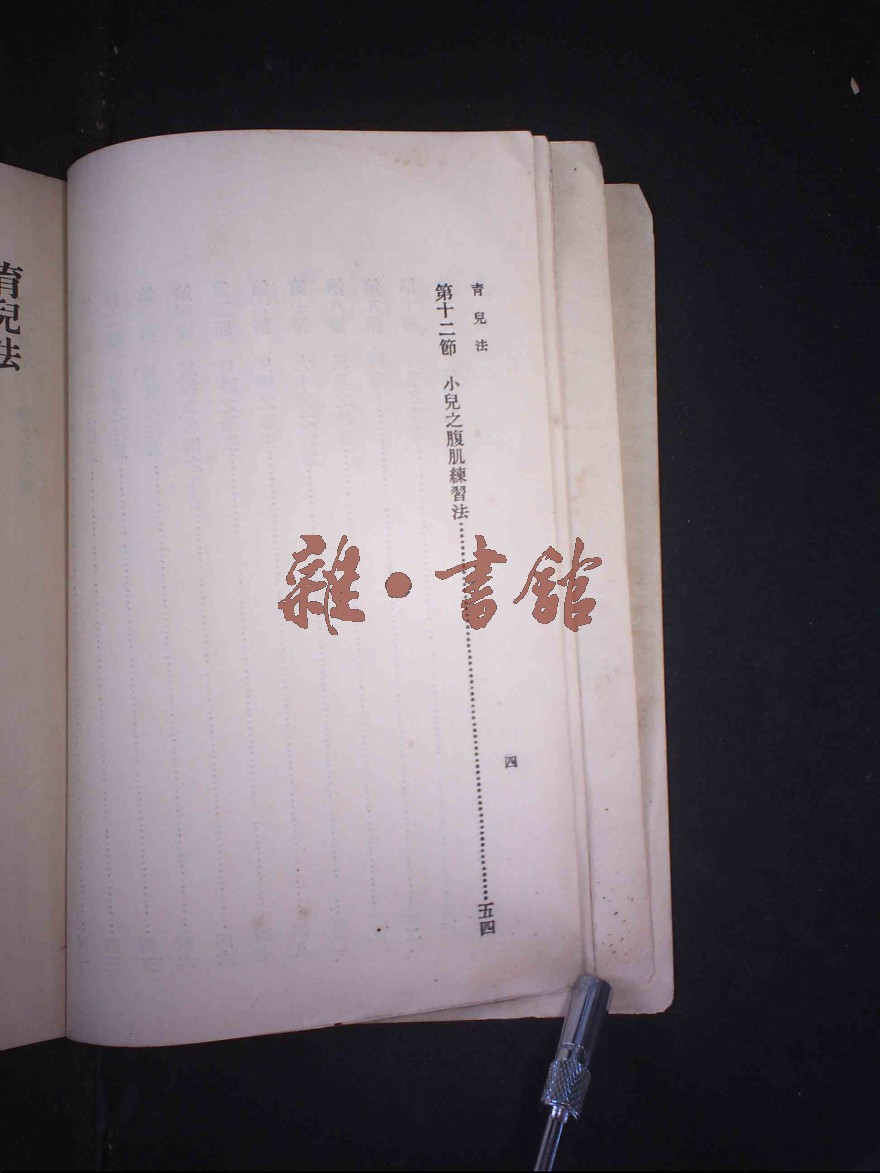 育兒法
四
第十二節　小兒之腹肌練習法……………………五四
雜·書館
育兒法